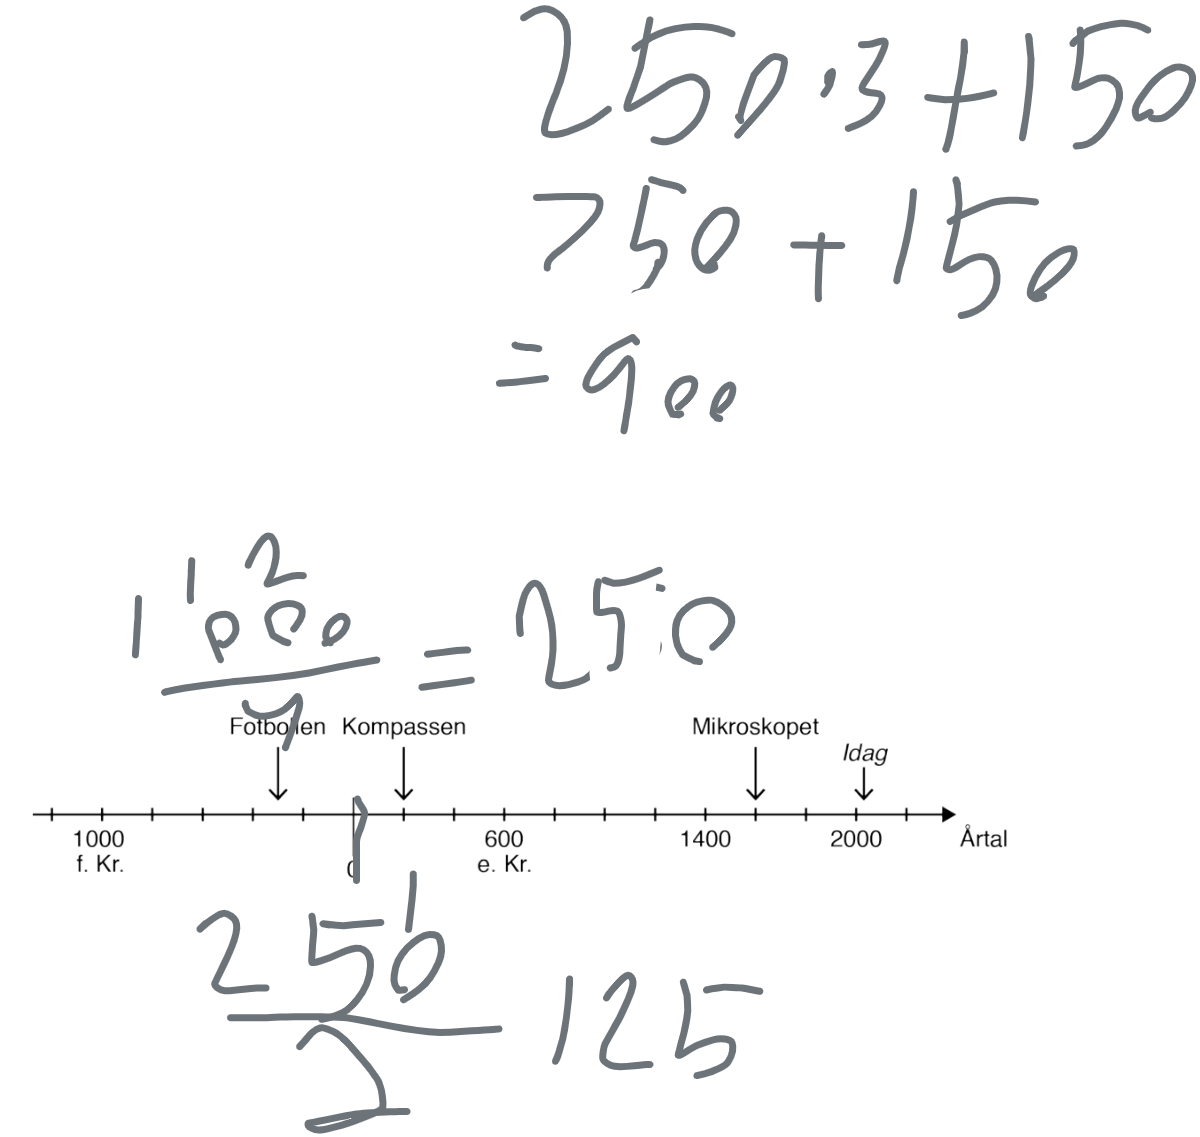 250·3+150
750+150
=900
1000 1 2
4
=250
Fotbollen Kompassen Mikroskopet
Idag
1000 0 600 1400 2000 Årtal
f. Kr. e. Kr.
250 1
2
125